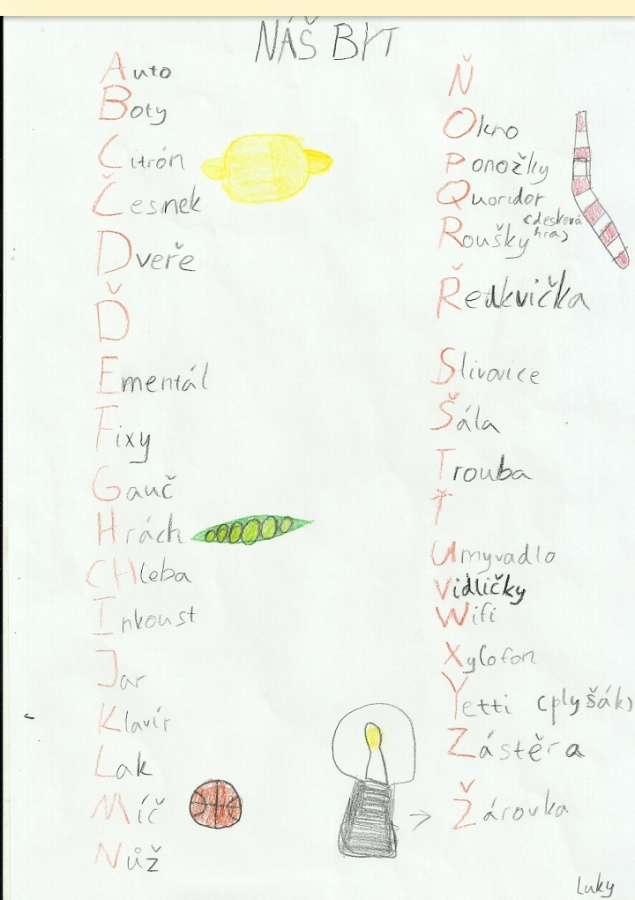 NÁŠ BYT
Auto
Boty
Citrón
Česnek
Dveře
Ď
Ementál
Fixy
Gauč
Hrách
CHleba
Inkoust
Jar
Klavír
Lak
Míč
Nůž
Ň
Okno
Ponožky
Quoridor
(desková
hra)
Roušky
Ředkvička
Slivovice
Šála
Trouba
Ť
Umyvadlo
Vidličky
Wifi
Xylofon
Yetti (plyšák)
Zástěra
Žárovka
Luky